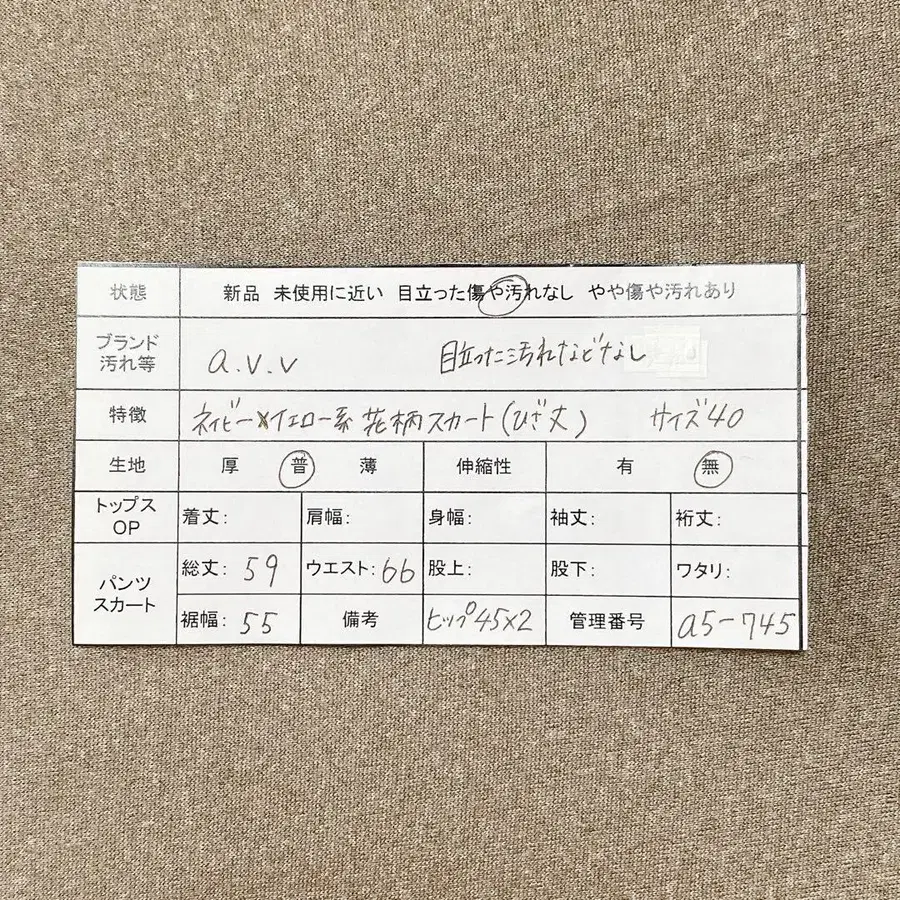 状態 新品 未使用に近い 目立った傷や汚れなし やや傷や汚れあり
ブランド
汚れ等 a.v.v 目立った汚れなどなし
特徴 ネイビー×イエロー系 花柄スカート(ひざ丈) サイズ40
生地 厚 普 薄 伸縮性 有 無
トップス
OP 着丈: 肩幅: 身幅: 袖丈: 裄丈:
パンツ
スカート 総丈: 59 ウエスト: 66 股上: 股下: ワタリ:
裾幅: 55 備考 ヒップ45×2 管理番号 a5-745